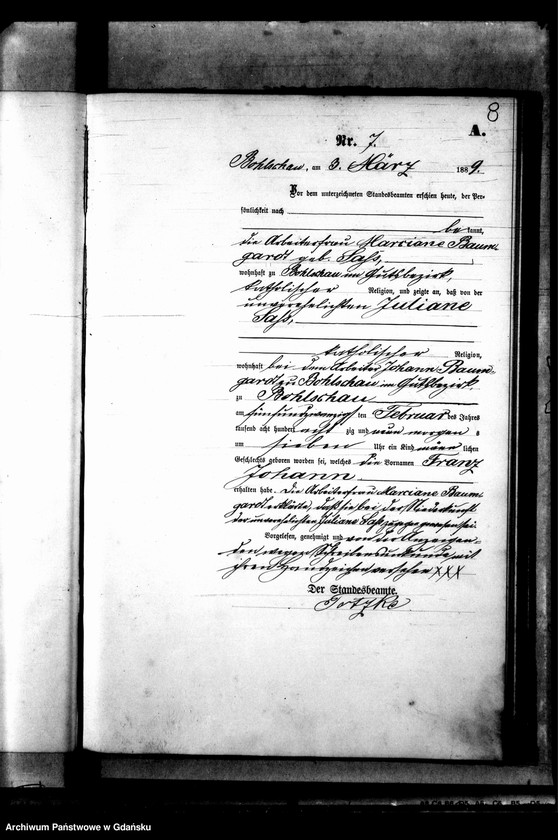 8
A.
Nr. 7.
Bohlschau, am 3. März 1889.
Vor dem unterzeichneten Standesbeamten erschien heute, der Per-
sönlichkeit nach
be kannt,
die Arbeiterfrau Marciane Baum-
gardt geb. Saß,
wohnhaft zu Bohlschau im Gutsbezirk,
katholischer Religion, und zeigte an, daß von der
unverehelichten Juliane
Saß,
katholischer Religion,
wohnhaft bei dem Arbeiter Johann Baum-
gardt zu Bohlschau im Gutsbezirk
zu Bohlschau
am fünfundzwanzig ten Februar des Jahres
tausend acht hundert acht zig und neun morgens
um sieben Uhr ein Kind männ lichen
Geschlechts geboren worden sei, welches die Vornamen Franz
Johann
erhalten habe. Die Arbeiterfrau Marciane Baum-
gardt erklärte, daß sie bei der Niederkunft
der unverehelichten Juliane Saß zugegen gewesen sei.
Vorgelesen, genehmigt und von der Anzeigen-
den wegen Schreibensunkunde mit
ihren Handzeichen versehen XXX
Der Standesbeamte.
Archiwum Państwowe w Gdańsku